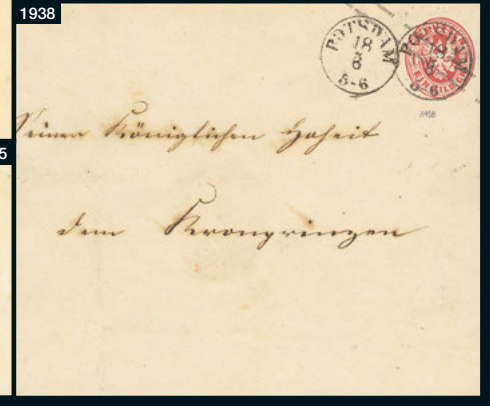 1938
5
POTSDAM
18
8
5-6
POTSDAM
18
8
5-6
EIN SILBERGR.
Seiner Königlichen Hoheit
dem Kronprinzen